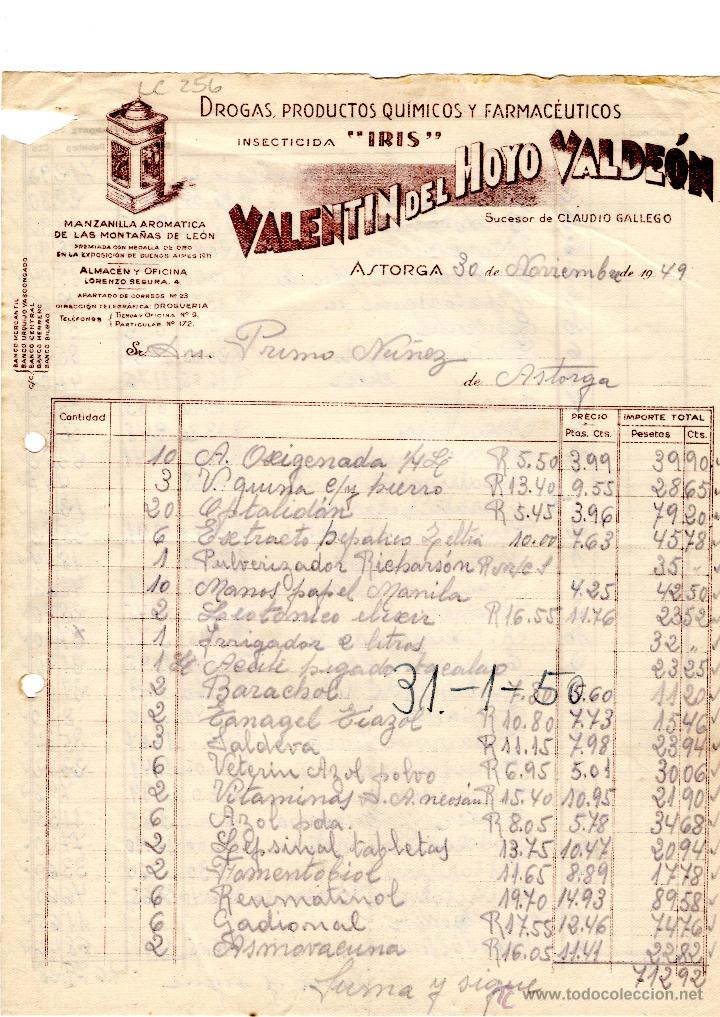 LC 256
DROGAS, PRODUCTOS QUÍMICOS Y FARMACÉUTICOS
INSECTICIDA "IRIS"
VALENTIN DEL HOYO VALDEÓN
Sucesor de CLAUDIO GALLEGO
MANZANILLA AROMATICA
DE LAS MONTAÑAS DE LEÓN
PREMIADA CON MEDALLA DE ORO
EN LA EXPOSICIÓN DE BUENOS AIRES 1911
ALMACÉN Y OFICINA
LORENZO SEGURA, 4
APARTADO DE CORREOS Nº 23
DIRECCIÓN TELEGRÁFICA: DROGUERIA
TELÉFONOS { TIENDA Y OFICINA Nº 9.
PARTICULAR Nº 172.
C/C. { BANCO MERCANTIL
BANCO URQUIJO VASCONGADO
BANCO CENTRAL
BANCO HERRERO
BANCO BILBAO
ASTORGA 30 de Noviembre de 1949
Sr. Dn. Primo Núñez
de Astorga
Cantidad PRECIO IMPORTE TOTAL
Ptas. Cts. Pesetas Cts.
10 A. Oxigenada 1/4 Li R 5.50 3.99 39 90
3 V. quina c/y hierro R 13.40 9.55 28 65
20 Optalidón R 5.45 3.96 79 20
6 Extracto hepatico Zeltia 10.00 7.63 45 78
1 Pulverizador Richarsón 35 "
10 Manos papel Manila 4.25 42 50
2 elixir R 16.55 11.76 23 52
1 Irrigador 2 litros 32 "
1 Li Aceite higado bacalao 23 25
2 Barachol 7.80 5.60 11 20
2 Tanagel Tiazol R 10.80 7.73 15 46
3 Jaldeva R 11.15 7.98 23 94
6 Veterin Azol polvo R 6.95 5.01 30 06
2 Vitaminas D. A. neosán R 15.40 10.95 21 90
6 Azol pda. R 8.05 5.78 34 68
2 tabletas 13.75 10.47 20 94
2 Fomentobiol 11.65 8.89 17 78
6 Reumatinol 19.70 14.93 89 58
6 Gadional R 17.55 12.46 74 76
2 Asmovacuna R 16.05 11.41 22 82
31-1-50
Suma y sigue 712 92
www.todocoleccion.net